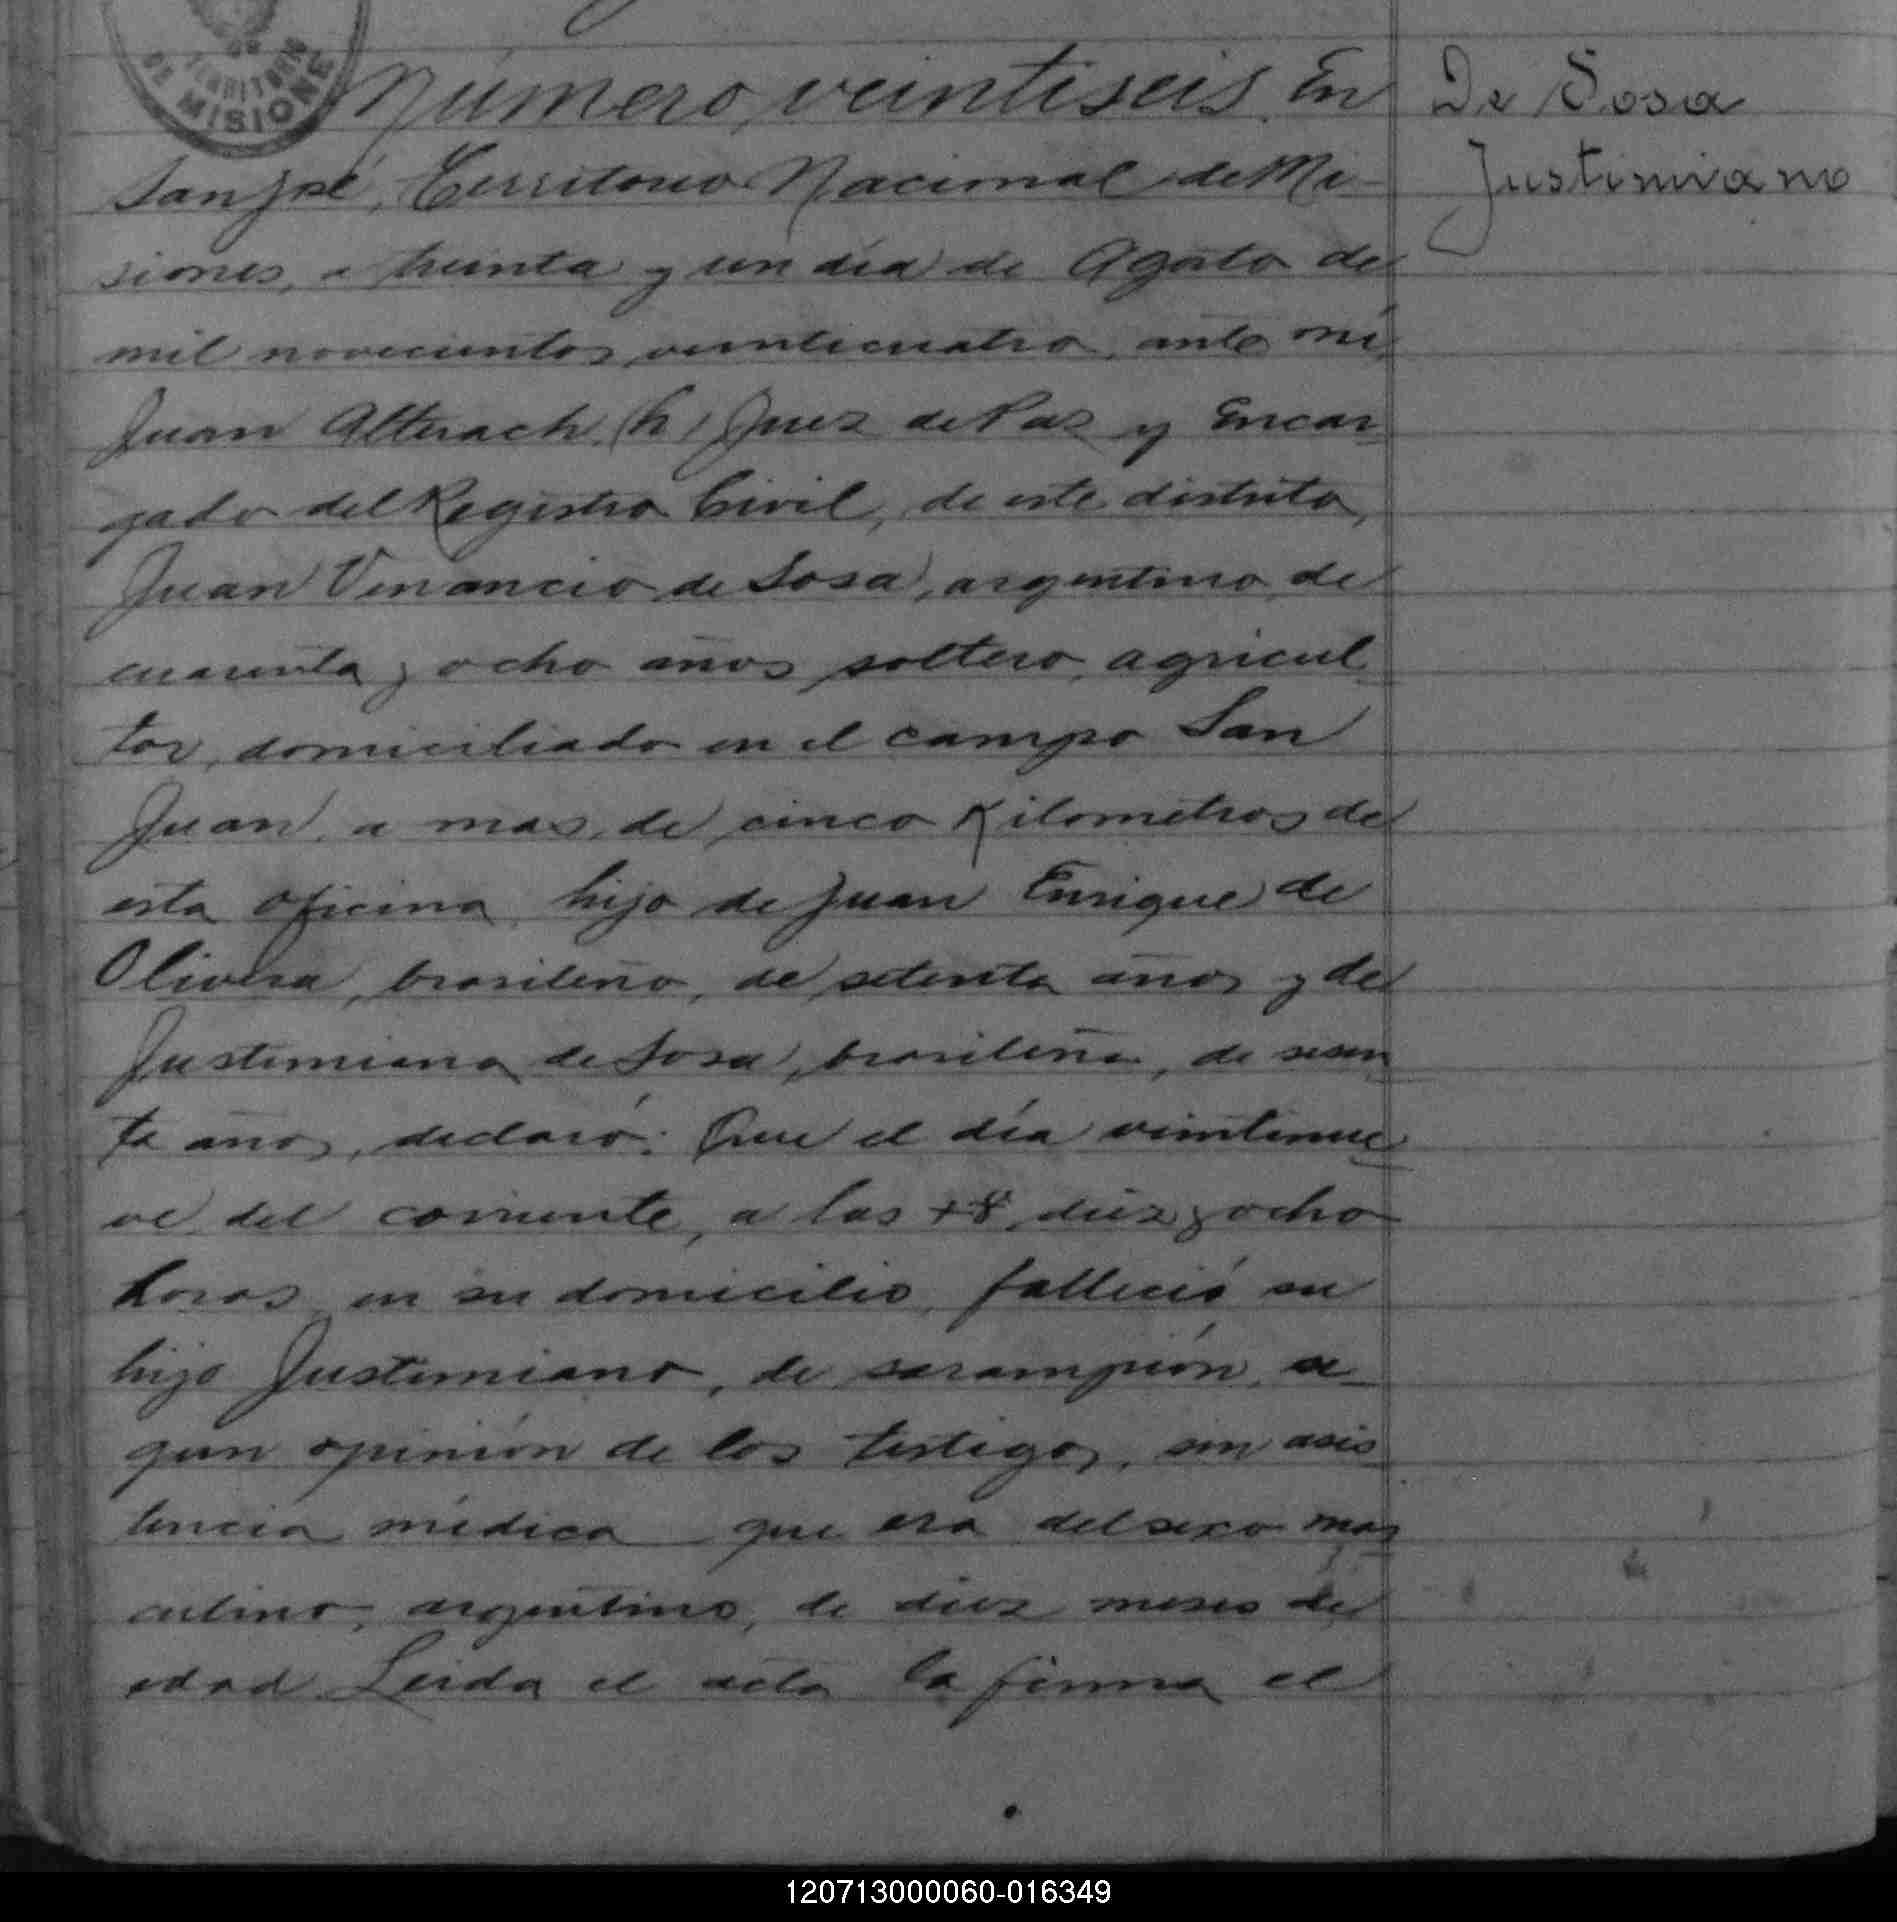 TERRITORIO
DE MISIONE
Número veintiseis. En
San José, Territorio Nacional de Mi-
siones, a treinta y un día de Agosto de
mil novecientos veinticuatro, ante mí,
Juan Alterach (h) Juez de Paz y Encar-
gado del Registro Civil, de este distrito,
Juan Venancio de Sosa, argentino, de
cuarenta y ocho años soltero, agricul-
tor, domiciliado en el campo San
Juan, a mas de cinco Kilometros de
esta oficina, hijo de Juan Enrique de
Olivera, brasileño, de setenta años y de
Justimiana de Sosa, brasileña, de sesen-
ta años, declaró: Que el día veintinue-
ve del corriente, a las 18, diez y ocho
horas, en su domicilio, falleció su
hijo Justimiano, de sarampión, se-
gun opinión de los testigos, sin asis
tencia médica que era del sexo mas-
culino, argentino, de diez meses de
edad. Leida el acta la firma el
De Sosa
Justimiano
120713000060-016349